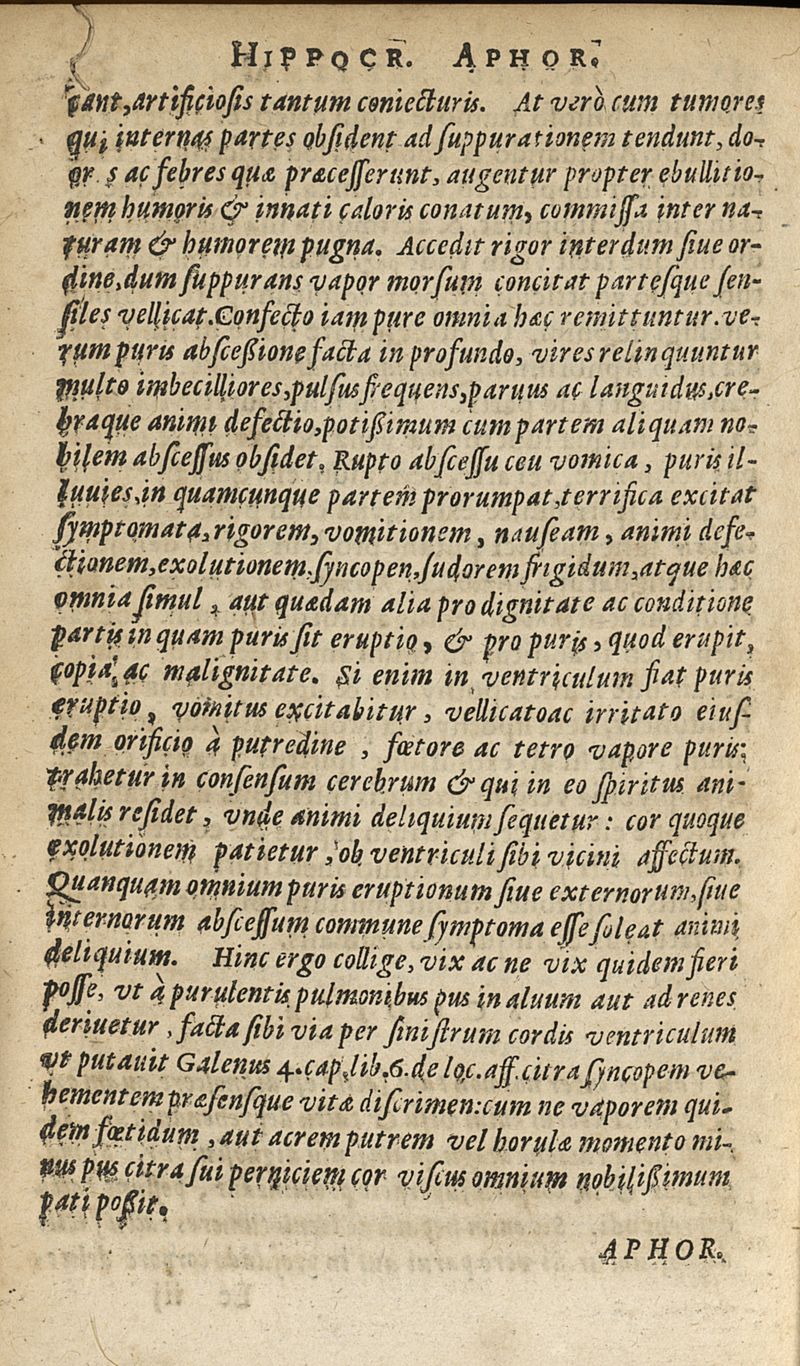 HIPPOCR. APHOR.
cant, artificiosis tantum coniecturis. At verò cum tumores
qui internas partes obsident ad suppurationem tendunt, do-
or s ac febres quæ præcesserunt, augentur propter ebullitio-
nem humoris & innati caloris conatum, commissa inter na-
turam & humorem pugna. Accedit rigor interdum siue or-
dine, dum suppurans vapor morsum concitat partesque sen-
siles vellicat. Confecto iam pure omnia hæc remittuntur. ve-
rum puris abscessione facta in profundo, vires relinquuntur
multo imbecilliores, pulsus frequens, paruus ac languidus, cre-
braque animi defectio, potissimum cum partem aliquam no-
bilem abscessus obsidet. Rupto abscessu ceu vomica, puris il-
luuies, in quamcunque partem prorumpat, terrifica excitat
symptomata, rigorem, vomitionem, nauseam, animi defe-
ctionem, exolutionem, syncopen, sudorem frigidum, atque hæc
omnia simul, aut quædam alia pro dignitate ac conditione
partis in quam puris sit eruptio, & pro puris, quod erupit,
copia, ac malignitate. Si enim in ventriculum fiat puris
eruptio, vomitus excitabitur, vellicato ac irritato eius-
dem orificio à putredine, fœtore ac tetro vapore puris:
trahetur in consensum cerebrum & qui in eo spiritus ani-
malis residet, vnde animi deliquium sequetur: cor quoque
exolutionem patietur, ob ventriculi sibi vicini affectum.
Quanquam omnium puris eruptionum siue externorum, siue
internorum abscessum commune symptoma esse soleat animi
deliquium. Hinc ergo collige, vix ac ne vix quidem fieri
posse, vt à purulentis pulmonibus pus in aluum aut ad renes
deriuetur, facta sibi via per sinistrum cordis ventriculum
vt putauit Galenus 4. cap. lib. 6. de loc. aff. citra syncopem ve-
hementem præsensque vitæ discrimen: cum ne vaporem qui-
dem fœtidum, aut acrem putrem vel horulæ momento mi-
nus pus citra sui perniciem cor viscus omnium nobilissimum
pati possit.
APHOR.